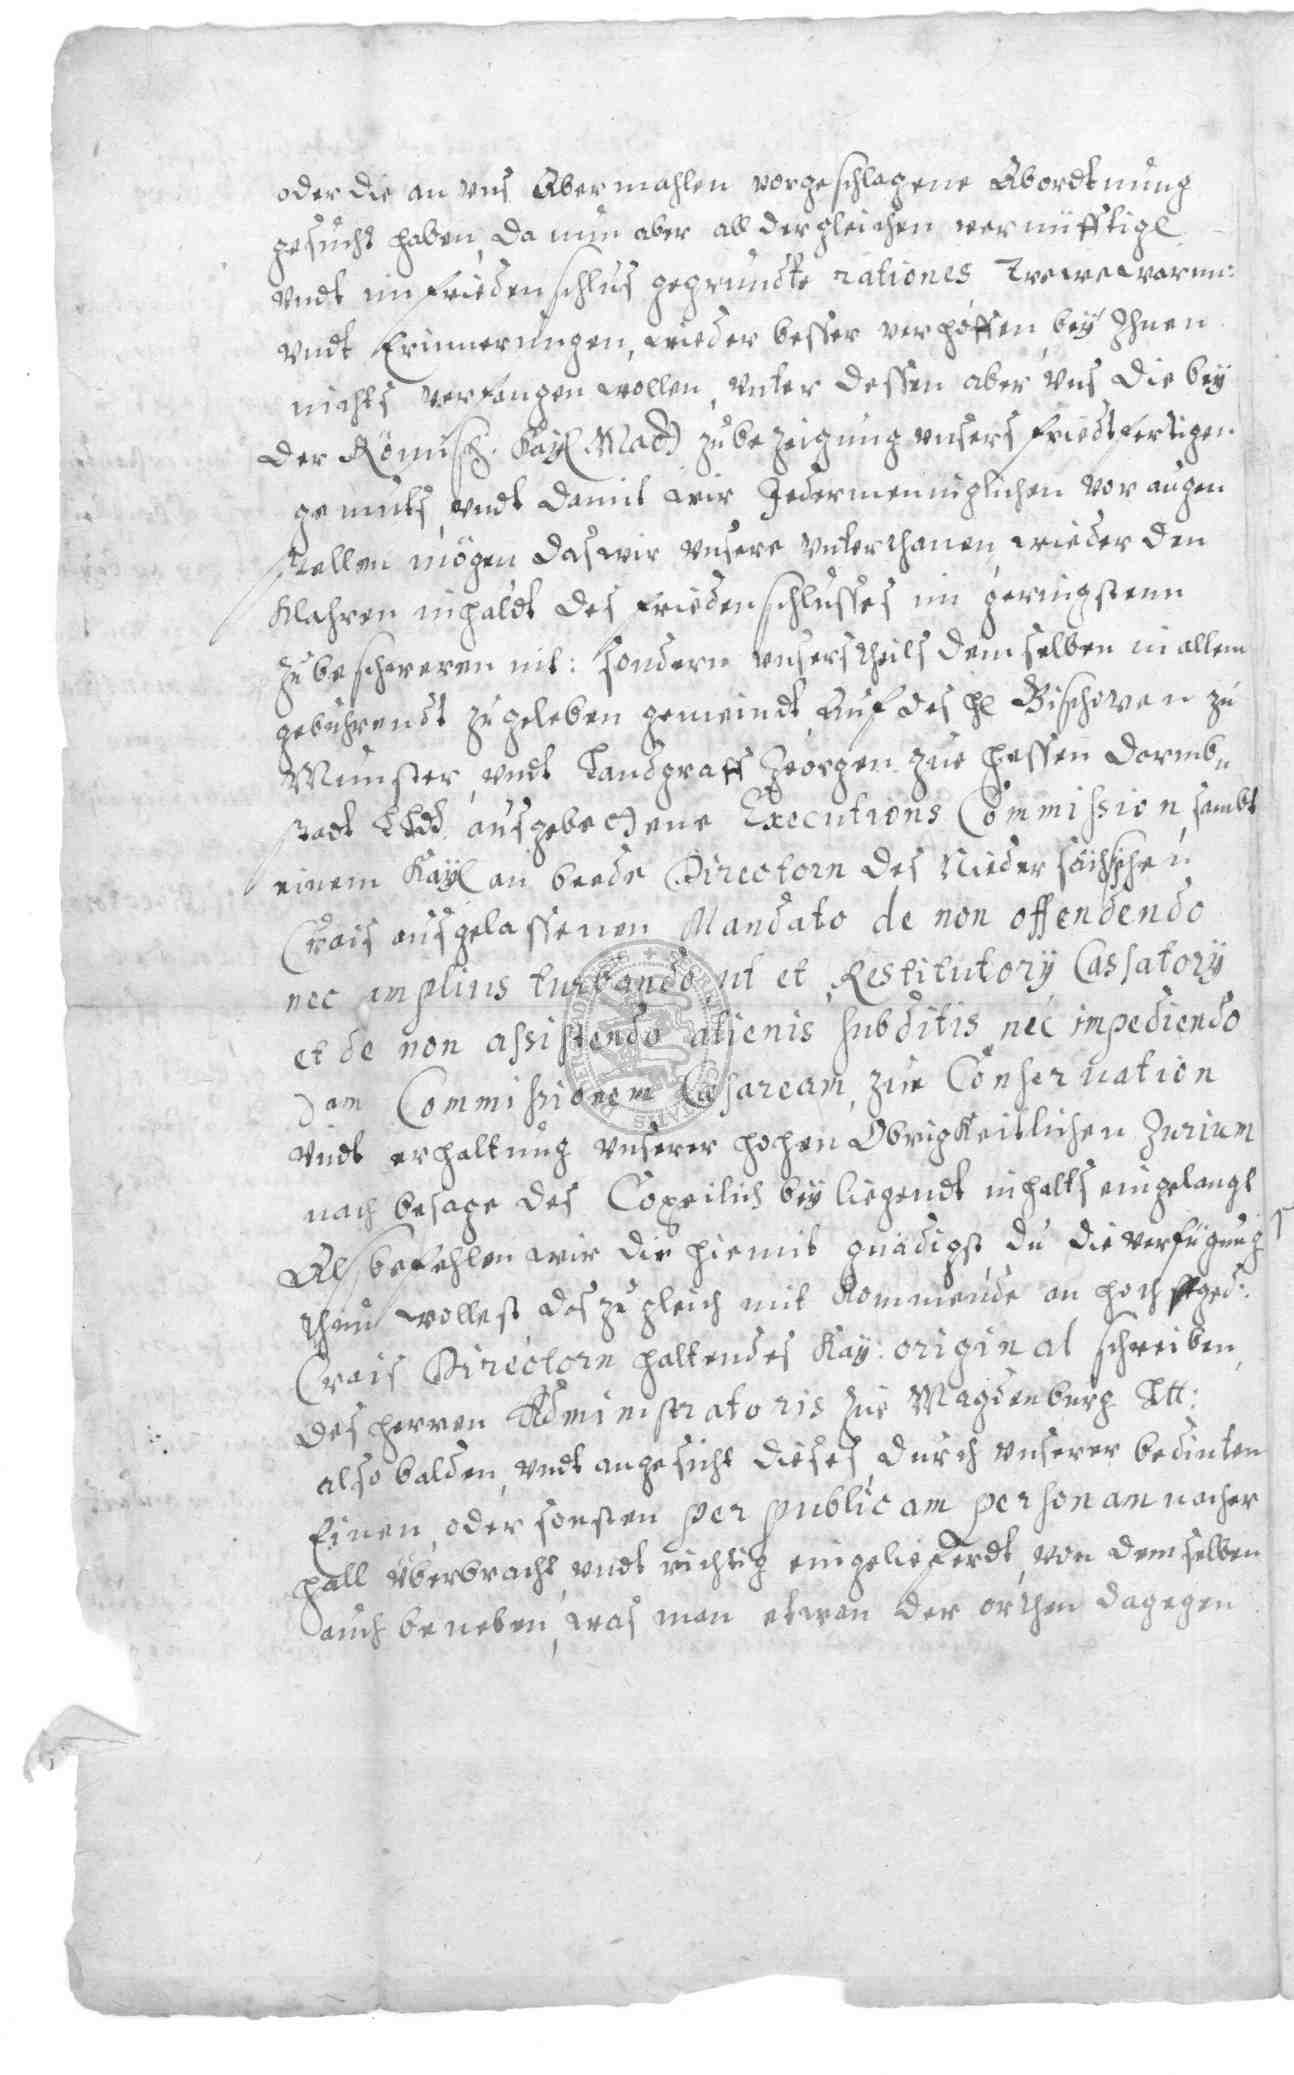 oder die an vns Abermahlen vorgeschlagene Abordtnung
gesucht haben, da nun aber all dergleichen vernüfftige
vndt im friedenschlus gegrundte rationes Trewewarn:
vndt Erinnerungen, wieder besser verhoffen, bey Ihnen
nichts verfangen wollen, vnter dessen aber vns die bey
der Römisch. Kay. Maytt zu bezeigung vnsers friedtfertigen
gemuts, vndt damit wir Jedermenniglichen vor augen
stellen mögen das wir vnsere vnterthanen, wieder den
Klahren inhaldt des friedenschlusses im geringstenn
zu beschweren nit: sondern vnserstheils demselben in allem
gebührendt zugeleben gemeindt, Auf des H. Bischoven zu
Munster, vndt Landgraff Georgen zue Hessen Darmb„
stadt LLdt. ausgebettene Executions Commission, sambt
einem Kay. an beede Directorn des Niedersächschen
Crais ausgelassenen Mandato de non offendendo
nec amplius turbando, ut et Restitutorij Cassatorij
et de non assistendo alienis subditis, nec impediendo
dam Commissionem Cæsaream, zur Conservation
vndt erhaltung vnserer hohen Obrigkeitlichen Jurium
nach besage des Copeilich beyliegendt inhalts eingelangt
Als befehlen wir dir hiemit gnädigst, du die verfügung
thun wollest das zugleich mit kommende an hochstged:
Crais Directorn haltendes Kay: original schreiben,
des Herren Administratoris zue Magdenburg Ltt:
also balden, vndt angesicht dieses, durch vnserer bedinten
Einen, oder sonsten per publicam personam nacher
Hall überbracht, vndt richtig eingelieferdt, von demselben
auch beneben, was man etwan der orthen dagegen